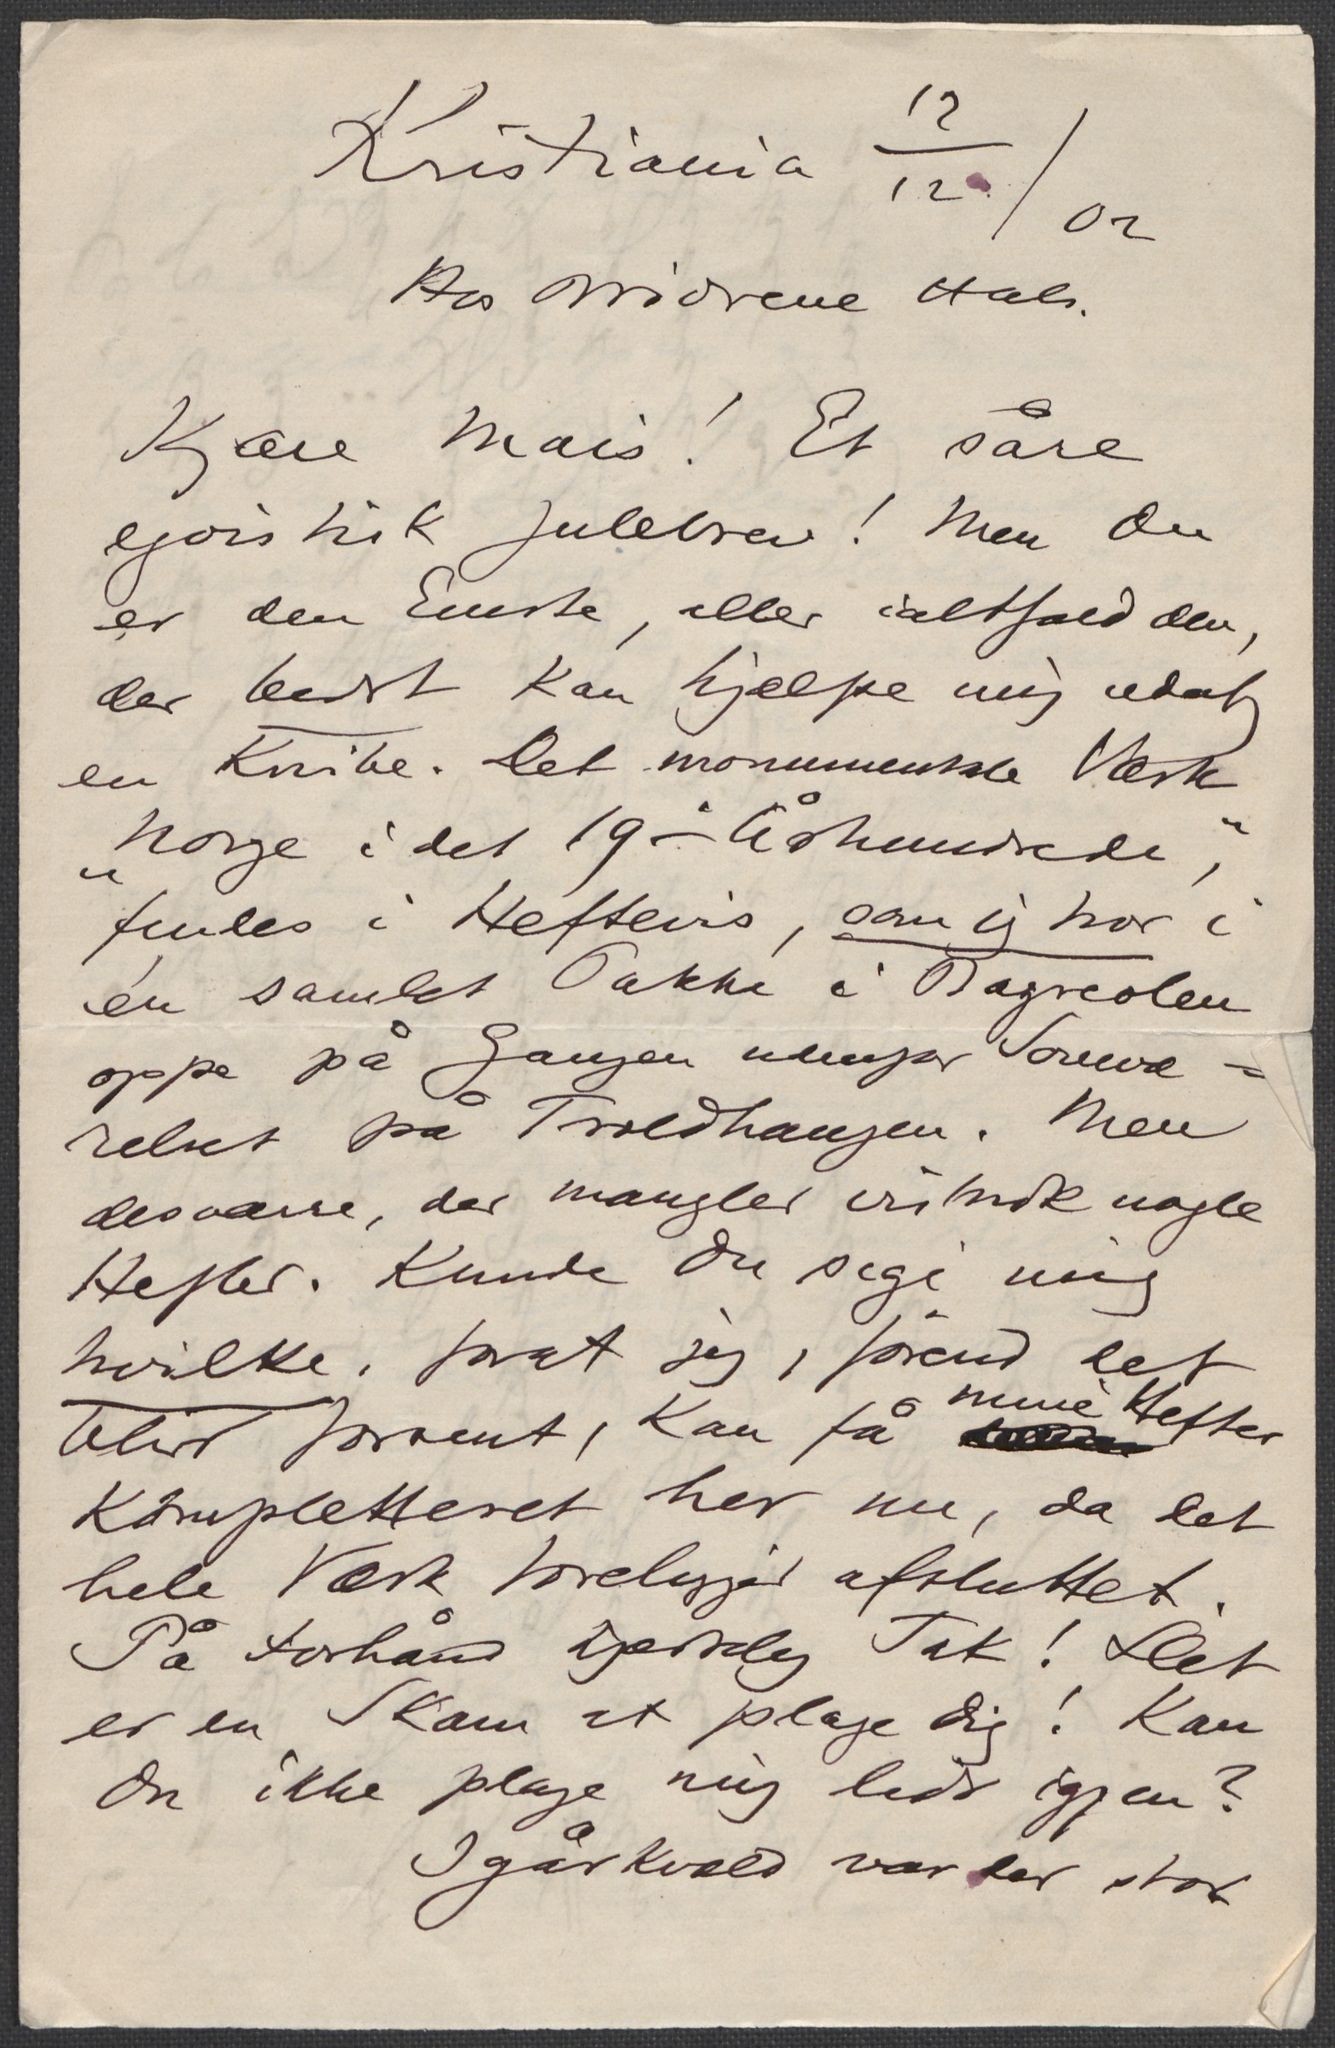 Kristiania 12/12/02
Hos Brødrene Hals.
Kjære Mais! Et såre
egoistisk Julebrev! Men Du
er den Eneste, eller ialtfald den,
der bedst kan hjælpe mig udaf
en Knibe. Det monumentale Værk
„Norge i det 19– Århundrede",
findes i Heftevis, som jeg har i
én samlet Pakke i Bagreolen
oppe på Gangen udenfor Sovevæ-
relset på Troldhaugen. Men
desværre, der mangler vistnok nogle
Hefter. Kunde Du sige mig
hvilke, forat jeg, førend det
blir forsent, kan få mine Hefter
kompletteret her nu, da det
hele Værk foreligger afsluttet.
På Forhånd hjertelig Tak! Det
er en Skam at plage Dig! Kan
Du ikke plage mig lidt igjen?
Igårkvæld var der stor